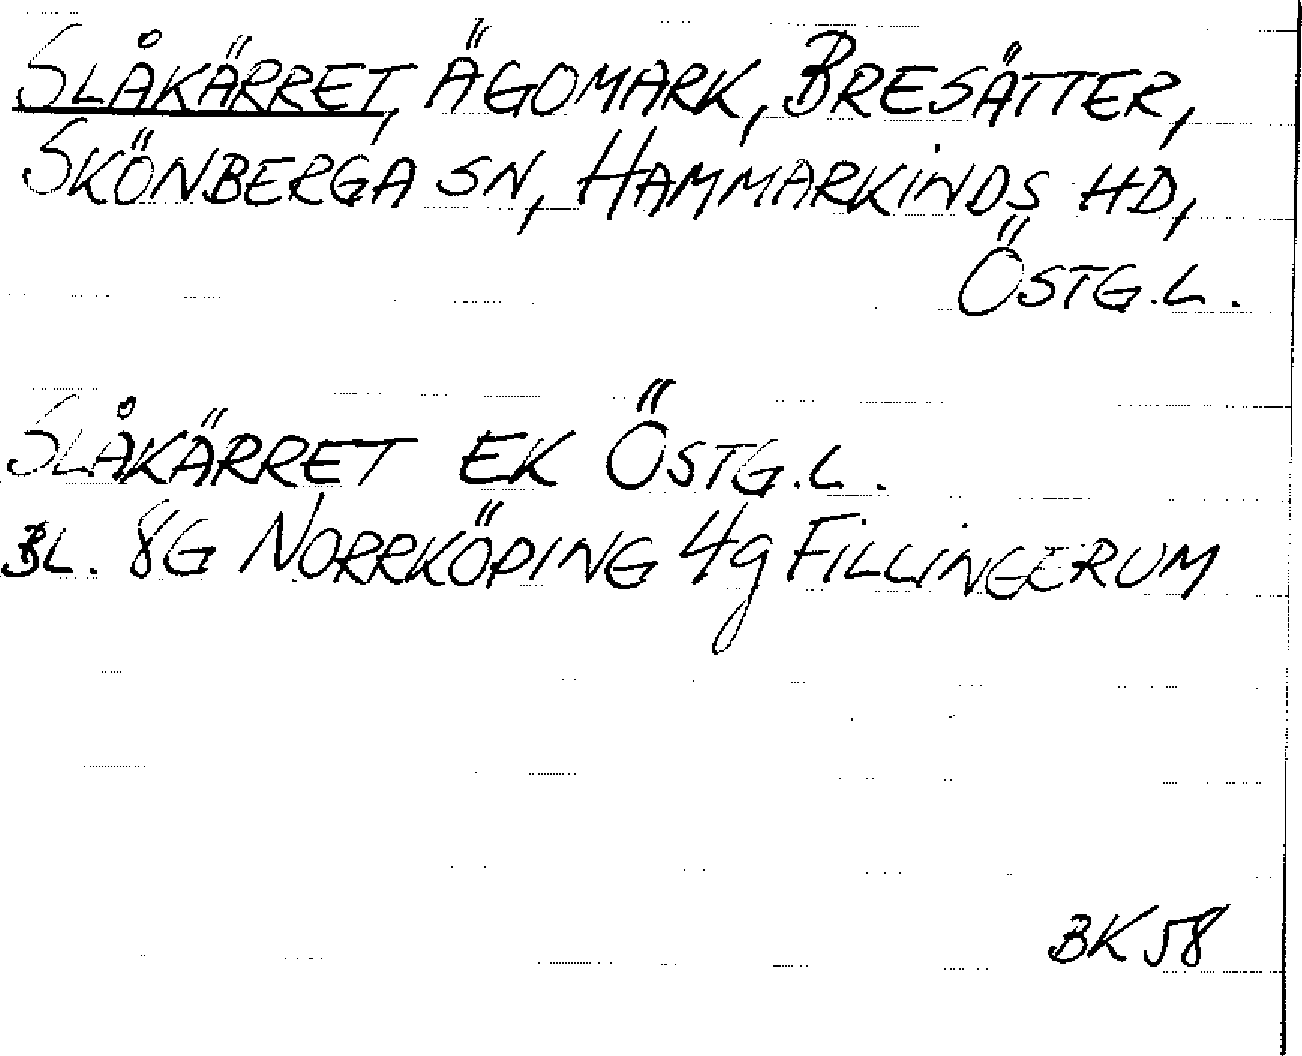 SLÅKÄRRET, ÄGOMARK, BRESÄTTER,
SKÖNBERGA SN, HAMMARKINDS HD,
ÖSTG.L.
SLÅKÄRRET EK ÖSTG.L.
BL. 8G NORRKÖPING 4g FILLINGERUM
BK 58